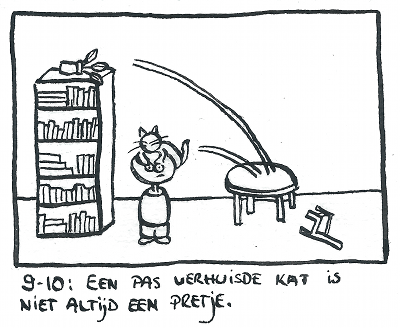 9-10: EEN PAS VERHUISDE KAT IS
NIET ALTIJD EEN PRETJE.